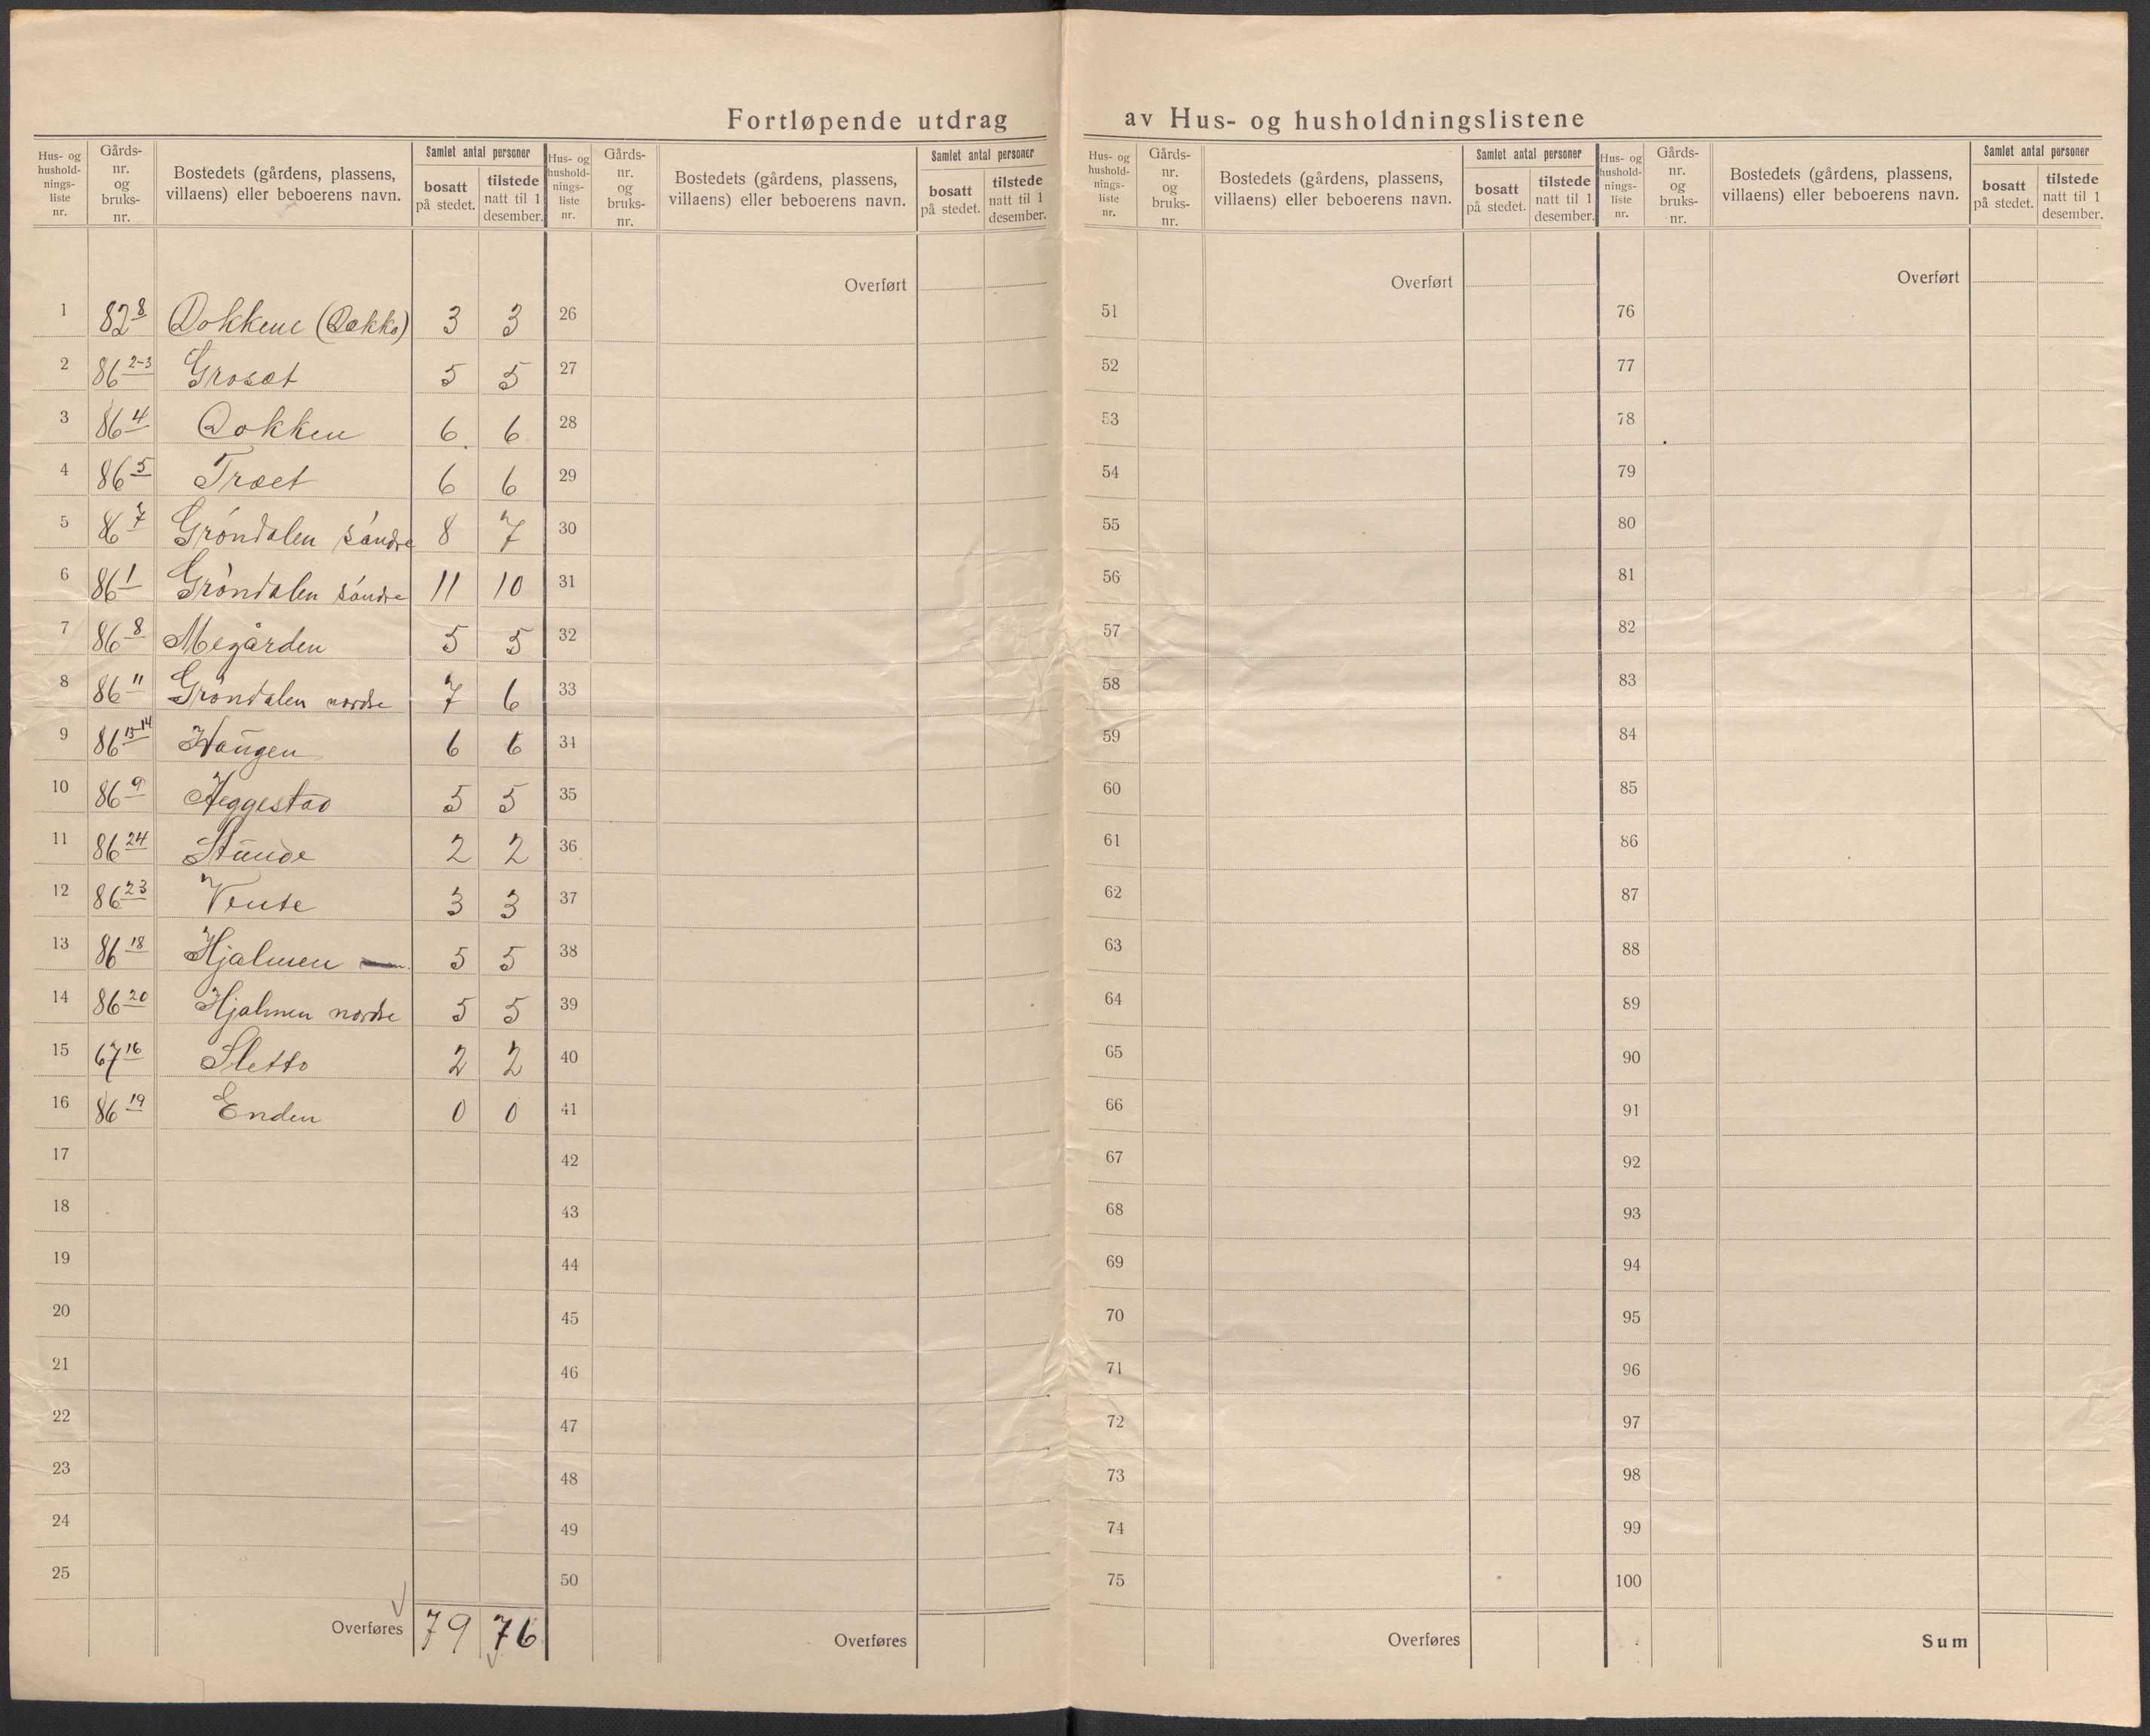 Fortløpende utdrag av Hus- og husholdningslistene
Hus- og hushold-nings-liste nr. Gårds-nr. og bruks-nr. Bostedets (gårdens, plassens, villaens) eller beboerens navn. Samlet antal personer bosatt på stedet. tilstede natt til 1 desember.
1 82 8 Dokkene (Dokko) 3 3
2 86 2-3 Grosæt 5 5
3 86 4 Dokken 6 6
4 86 5 Træet 6 6
5 86 7 Gröndalen söndre 8 7
6 86 1 Gröndalen söndre 11 10
7 86 8 Megården 5 5
8 86 11 Gröndalen nordre 7 6
9 86 13-14 Haugen 6 6
10 86 9 Heggestad 5 5
11 86 24 2 2
12 86 23 3 3
13 86 18 Hjalmen 5 5
14 86 20 Hjalmen nordre 5 5
15 67 16 Sletto 2 2
16 86 19 Enden 0 0
17
18
19
20
21
22
23
24
25
Overføres 79 76
Hus- og hushold-nings-liste nr. Gårds-nr. og bruks-nr. Bostedets (gårdens, plassens, villaens) eller beboerens navn. Samlet antal personer bosatt på stedet. tilstede natt til 1 desember.
Overført
26
27
28
29
30
31
32
33
34
35
36
37
38
39
40
41
42
43
44
45
46
47
48
49
50
Overføres
Hus- og hushold-nings-liste nr. Gårds-nr. og bruks-nr. Bostedets (gårdens, plassens, villaens) eller beboerens navn. Samlet antal personer bosatt på stedet. tilstede natt til 1 desember.
Overført
51
52
53
54
55
56
57
58
59
60
61
62
63
64
65
66
67
68
69
70
71
72
73
74
75
Overføres
Hus- og hushold-nings-liste nr. Gårds-nr. og bruks-nr. Bostedets (gårdens, plassens, villaens) eller beboerens navn. Samlet antal personer bosatt på stedet. tilstede natt til 1 desember.
Overført
76
77
78
79
80
81
82
83
84
85
86
87
88
89
90
91
92
93
94
95
96
97
98
99
100
Sum